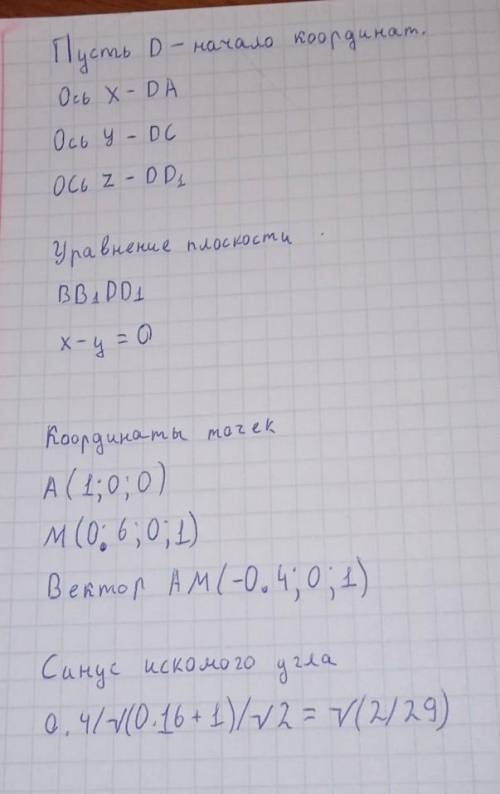 Пусть D - начало координат.
Ось X - DA
Ось y - DC
ОСЬ Z - DD₁
Уравнение плоскости
BB₁DD₁
x - y = 0
Координаты точек
A (1; 0; 0)
M (0.6; 0; 1)
Вектор AM (-0.4; 0; 1)
Синус искомого угла
0.4/√(0.16+1)/√2 = √(2/29)